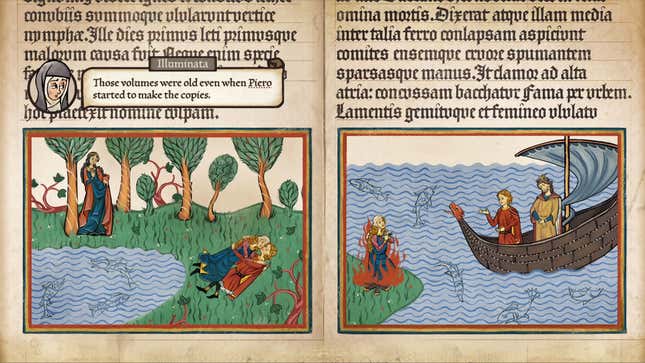 convbiis svmmoqve vlvlarvnt vertice
nymphæ. Ille dies primvs leti primvsqve
malorvm cavsa fvit. Neqve enim specie
Illuminata
Those volumes were old even when Piero
started to make the copies.
nomine cvlpam.
omina mortis. Dixerat atqve illam media
inter talia ferro conlapsam aspicivnt
comites ensemqve crvore spvmantem
sparsasqve manvs. It clamor ad alta
atria: concvssam bacchatvr Fama per vrbem.
Lamentis gemitvqve et femineo vlvlatv